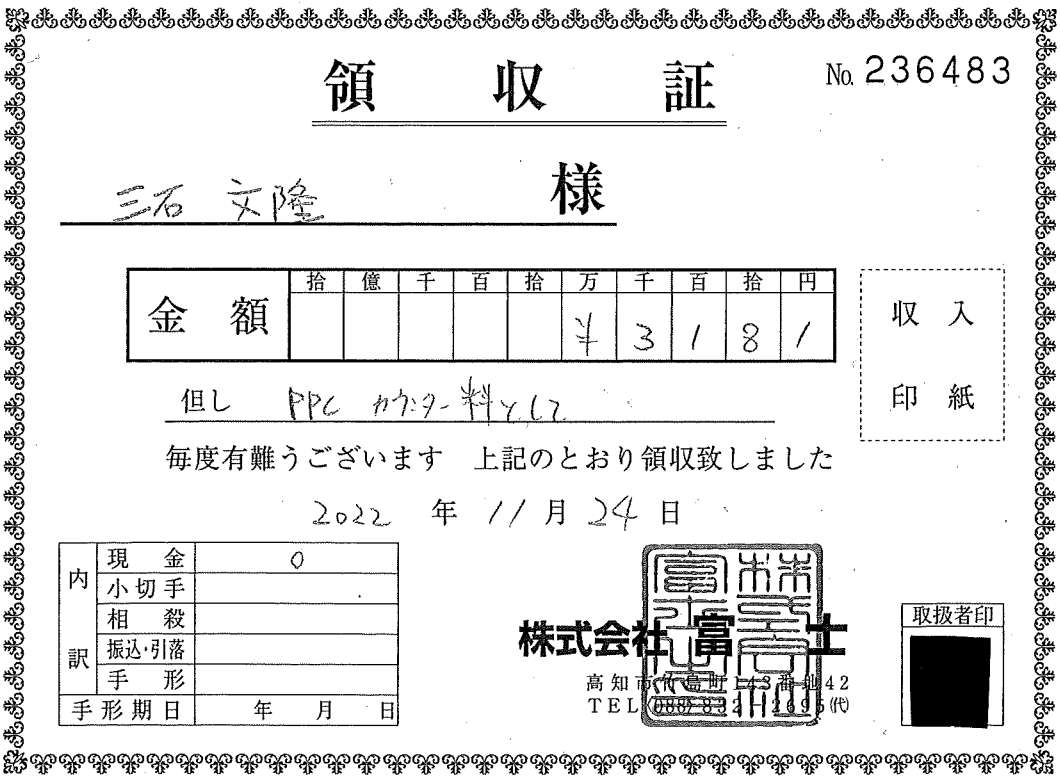 領収証
No. 236483
三石 文隆 様
金額
拾 億 千 百 拾 万 千 百 拾 円
¥ 3 1 8 1
収入
印紙
但し PPC カウンター料として
毎度有難うございます 上記のとおり領収致しました
2022 年 11 月 24 日
内訳
現金 0
小切手
相殺
振込・引落
手形
手形期日 年 月 日
株式会社 富士
高知市竹島町143番地42
TEL(088)832-2695(代)
取扱者印